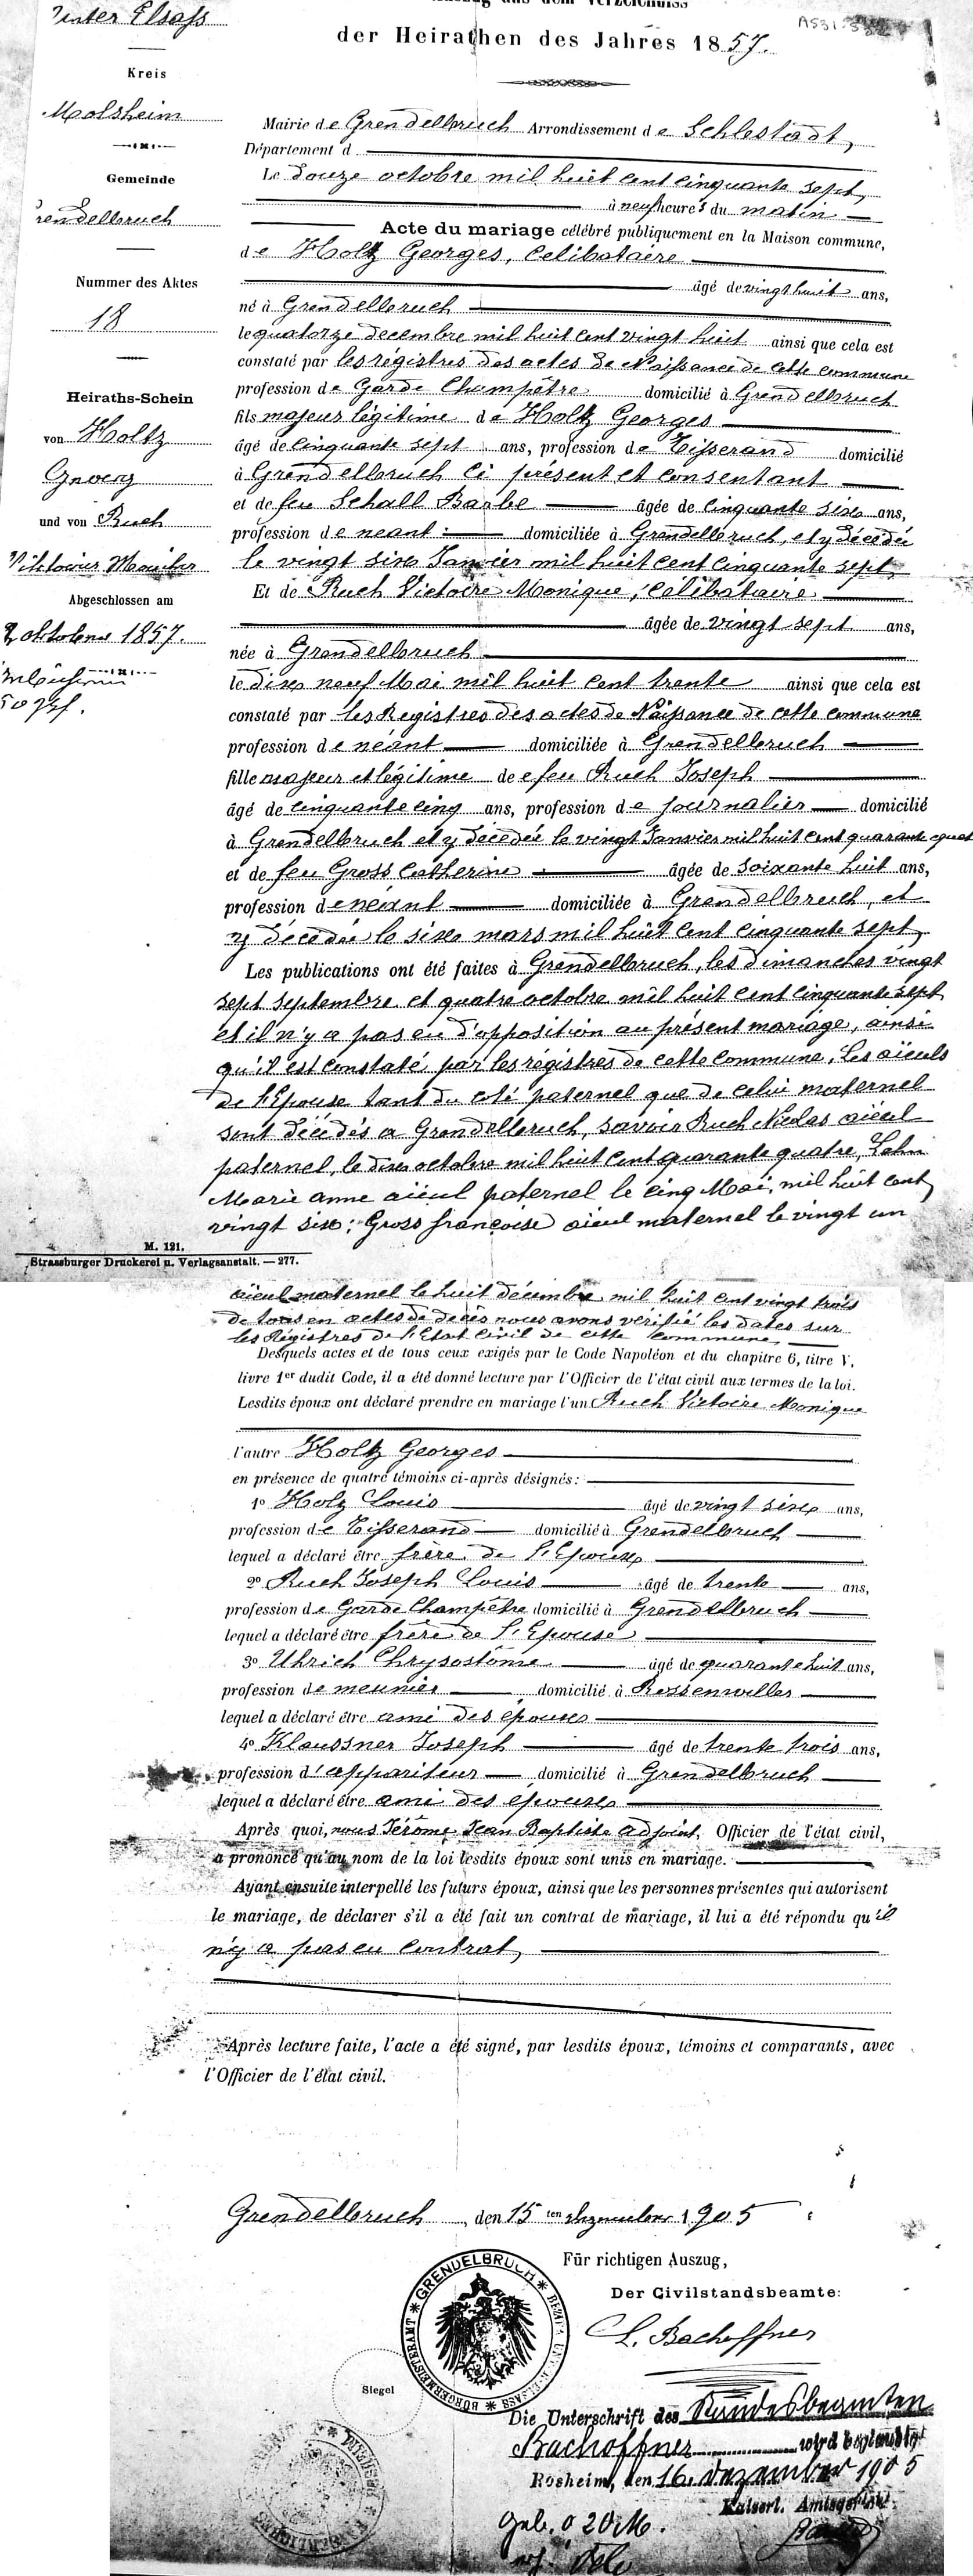 Unter Elsass
Kreis
Molsheim
Gemeinde
Grendelbruch
Nummer des Aktes
18
Heiraths-Schein
von Holtz
Georg
und von Ruch
Abgeschlossen am
1857.
aus dem Verzeichniss
der Heirathen des Jahres 1857.
Mairie de Grendelbruch Arrondissement de Schlestadt,
Département d
Le douze octobre mil huit cent cinquante sept,
à neuf heures du matin
Acte du mariage célébré publiquement en la Maison commune,
de Holtz Georges, Celibataire
âgé de vingt huit ans,
né à Grendelbruch
le quatorze decembre mil huit cent vingt huit ainsi que cela est
constaté par les régistres des actes de Naissance de cette commune
profession de Garde Champêtre domicilié à Grendelbruch
fils majeur légitime de Holtz Georges
âgé de cinquante sept ans, profession de Tisserand domicilié
à Grendelbruch ci présent et consentant
et de feu Schall Barbe âgée de cinquante six ans,
profession de neant domiciliée à Grendelbruch, et y décedée
le vingt six Janvier mil huit cent cinquante sept,
Et de Ruch Victoire Monique, Célibataire
âgée de vingt sept ans,
née à Grendelbruch
le dix neuf Mai mil huit cent trente ainsi que cela est
constaté par les Registres des actes de Naissance de cette commune
profession de néant domiciliée à Grendelbruch
fille majeur et légitime de feu Ruch Joseph
âgé de cinquante cinq ans, profession de journalier domicilié
à Grendelbruch et y décedé le vingt Janvier mil huit cent quarante quat
et de feu Gross Catherine âgée de soixante huit ans,
profession de neant domiciliée à Grendelbruch, et
y décedée le six mars mil huit cent cinquante sept,
Les publications ont été faites à Grendelbruch, les dimanches vingt
sept septembre et quatre octobre mil huit cent cinquante sept
et il n'y a pas eu d'opposition au présent mariage, ainsi
qu'il est constaté par les régistres de cette commune. Les aïeuls
de l'Epouse tant du coté paternel que de celui maternel
sont décédés a Grendelbruch, savoir Ruch Nicolas aïeul
paternel, le dix octobre mil huit cent quarante quatre,
Marie anne aïeul paternel le cinq Mai, mil huit cent
vingt six; Gross françoise aïeul maternel le vingt un
M. 121.
Strassburger Druckerei u. Verlagsanstalt. — 277.
aïeul maternel le huit décembre mil huit cent vingt trois
de tous en actes de decès nous avons vérifié les dates sur
les Régistres de l'Etat Civil de cette commune,
Desquels actes et de tous ceux exigés par le Code Napoléon et du chapitre 6, titre V,
livre 1er dudit Code, il a été donné lecture par l'Officier de l'état civil aux termes de la loi.
Lesdits époux ont déclaré prendre en mariage l'un Ruch Victoire Monique
l'autre Holtz Georges
en présence de quatre témoins ci-après désignés:
1o Holz Louis âgé de vingt six ans,
profession de Tisserand domicilié à Grendelbruch
lequel a déclaré être frère de l'Epoux
2o Ruch Joseph Louis âgé de trente ans,
profession de Garde Champêtre domicilié à Grendelbruch
lequel a déclaré être frère de l'Epouse
3o Uhrich Chrysostôme âgé de quarante huit ans,
profession de meunier domicilié à Rossenwiller
lequel a déclaré être ami des epouses
4o Klaussner Joseph âgé de trente trois ans,
profession d'appariteur domicilié à Grendelbruch
lequel a déclaré être ami des epouses
Après quoi, nous Jérôme Jean Baptiste adjoint, Officier de l'état civil,
a prononcé qu'au nom de la loi lesdits époux sont unis en mariage.
Ayant ensuite interpellé les futurs époux, ainsi que les personnes présentes qui autorisent
le mariage, de déclarer s'il a été fait un contrat de mariage, il lui a été répondu qu'il
n'y a pas eu contrat,
Après lecture faite, l'acte a été signé, par lesdits époux, témoins et comparants, avec
l'Officier de l'état civil.
Grendelbruch, den 15ten Dezember 1905
Für richtigen Auszug,
Der Civilstandsbeamte:
L. Bachoffner
GRENDELBRUCH * BEZIRK UNT. ELSASS * BÜRGERMEISTERAMT *
Siegel
Die Unterschrift des Standesbeamten
Bachoffner wird beglaubigt
Rosheim, den 16. Dezember 1905
Kaiserl. Amtsgericht
Geb. 0 20 M.